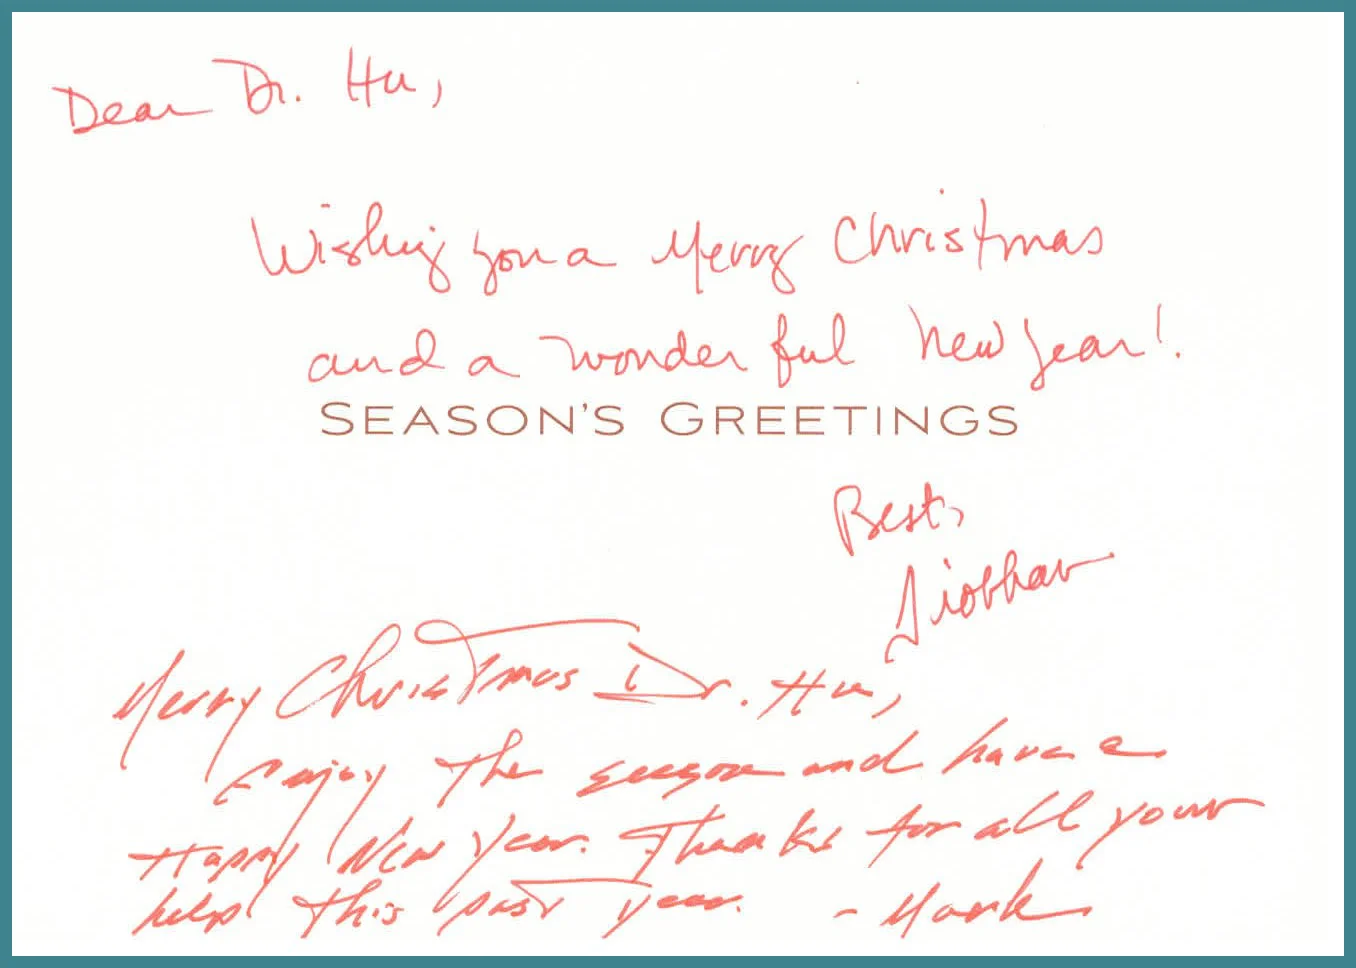 Dear Dr. Hu,
Wishing you a Merry Christmas
and a wonderful New Year!
SEASON'S GREETINGS
Best,
Siobhan
Merry Christmas Dr. Hu,
Enjoy the season and have a
Happy New Year. Thanks for all your
help this past year. - Mark